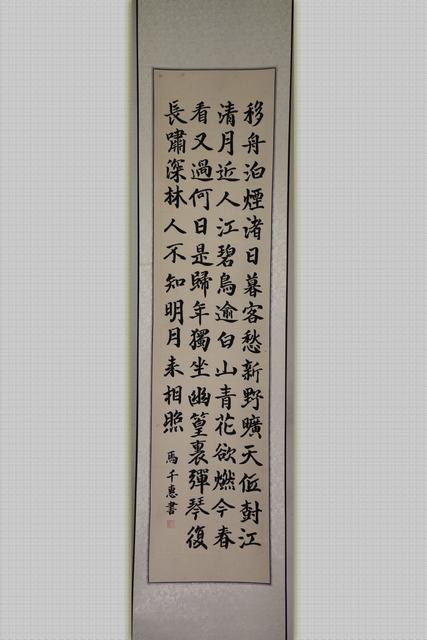 移舟泊煙渚日暮客愁新野曠天低樹江
清月近人江碧鳥逾白山青花欲燃今春
看又過何日是歸年獨坐幽篁裏彈琴復
長嘯深林人不知明月来相照
馬千惠書